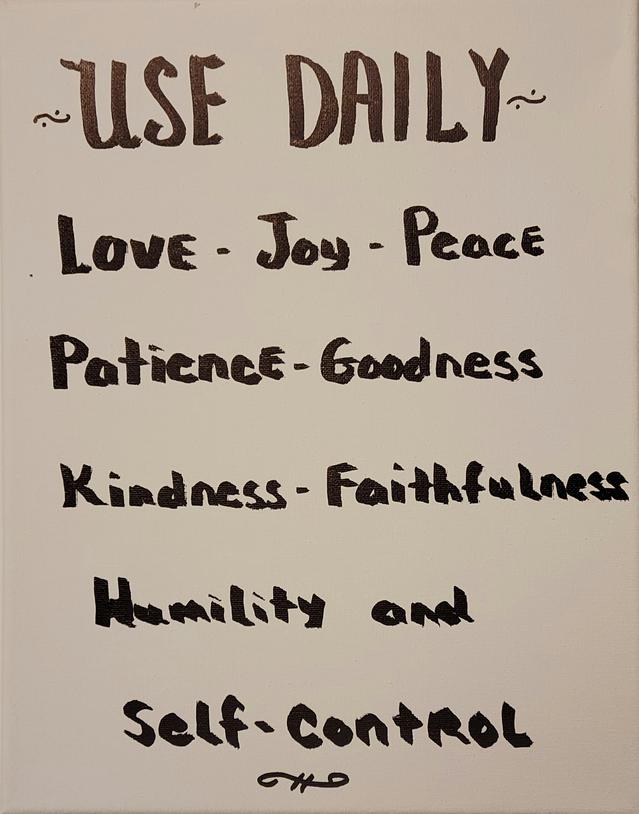 USE DAILY
Love - Joy - Peace
Patience - Goodness
Kindness - Faithfulness
Humility and
Self-Control